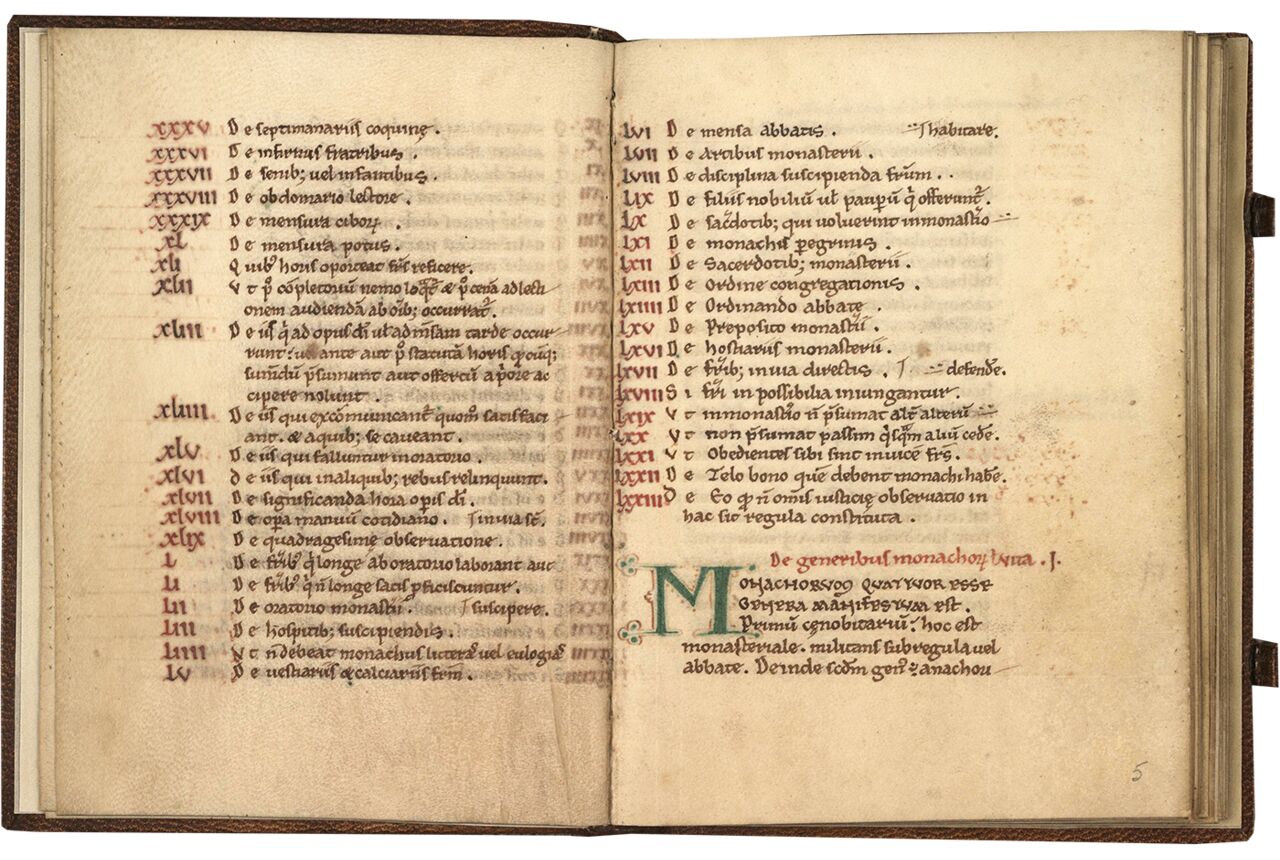 XXXV De septimanariis coquinę.
XXXVI De infirmis fratribus.
XXXVII De senib; uel infantibus.
XXXVIII De obdomario lectore.
XXXIX De mensura ciboꝝ.
XL De mensura potus.
XLI Quib; horis oporteat fr̄s reficere.
XLII Vt p̄ cōpletoriū nemo loq̄t̄ & p̄ cenā ad lecti
onem audiendā ab oīb; occurrat̄.
XLIII De iis q̄ ad opus dī ut ad m̄sam tarde occur
runt: uł ante aut p̄ statutā horis
sumēdū p̄sumunt aut offertū a p̄ore ac
cipere nolunt.
XLIIII De iis qui excōmunicant̄ quom̄ satisfaci
ant. & a quib; se caueant.
XLV De iis qui falluntur in oratorio.
XLVI de iis qui in aliquib; rebus relinquunt.
XLVII De significanda hora opis dī.
XLVIII De opa manuū cotidiano. in uia st̄.
XLIX De quadragesimę obseruatione.
L De fr̄ib; q̄ longe ab oratorio laborant aut
LI De fr̄ib; q̄ n̄ longe satis pficiscuntur.
LII De oratorio monasterii. suscipere.
LIII De hospitib; suscipiendis.
LIIII Vt n̄ debeat monachus litteras uel eulogias
LV De uestiariis & calciariis fr̄m.
LVI De mensa abbatis. habitare.
LVII De Artibus monasterii.
LVIII De disciplina suscipienda fr̄um.
LIX De filiis nobiliū uł paupū q̄ offerunt̄.
LX De sacdotib; qui uoluerint in monast̄io
LXI De monachis pegrinis.
LXII De Sacerdotib; monasterii.
LXIII De Ordine congregationis.
LXIIII De Ordinando abbate
LXV De Preposito monast̄ii.
LXVI De hostiariis monasterii.
LXVII De fr̄ib; in uia directis. defendē.
LXVIII Si fr̄i in possibilia iniungantur.
LXIX Vt in monast̄io n̄ p̄sumat alt̄ alterū
LXX Vt non p̄sumat passim q̄sq̄am aliū cedē.
LXXI Vt Obedientes sibi sint inuicē fr̄s.
LXXII De Zelo bono quē debent monachi habē.
LXXIII De Eo qđ n̄ omīs iusticię obseruatio in
hac sit regula constituta.
De generibus monachoꝝ ł uita. I.
MONACHORVM QVATVOR ESSE
GENERA MANIFESTVM EST.
Primū cęnobitariū: hoc est
monasteriale. militans sub regula uel
abbate. Deinde scd̄m gen⁹: anachori
5